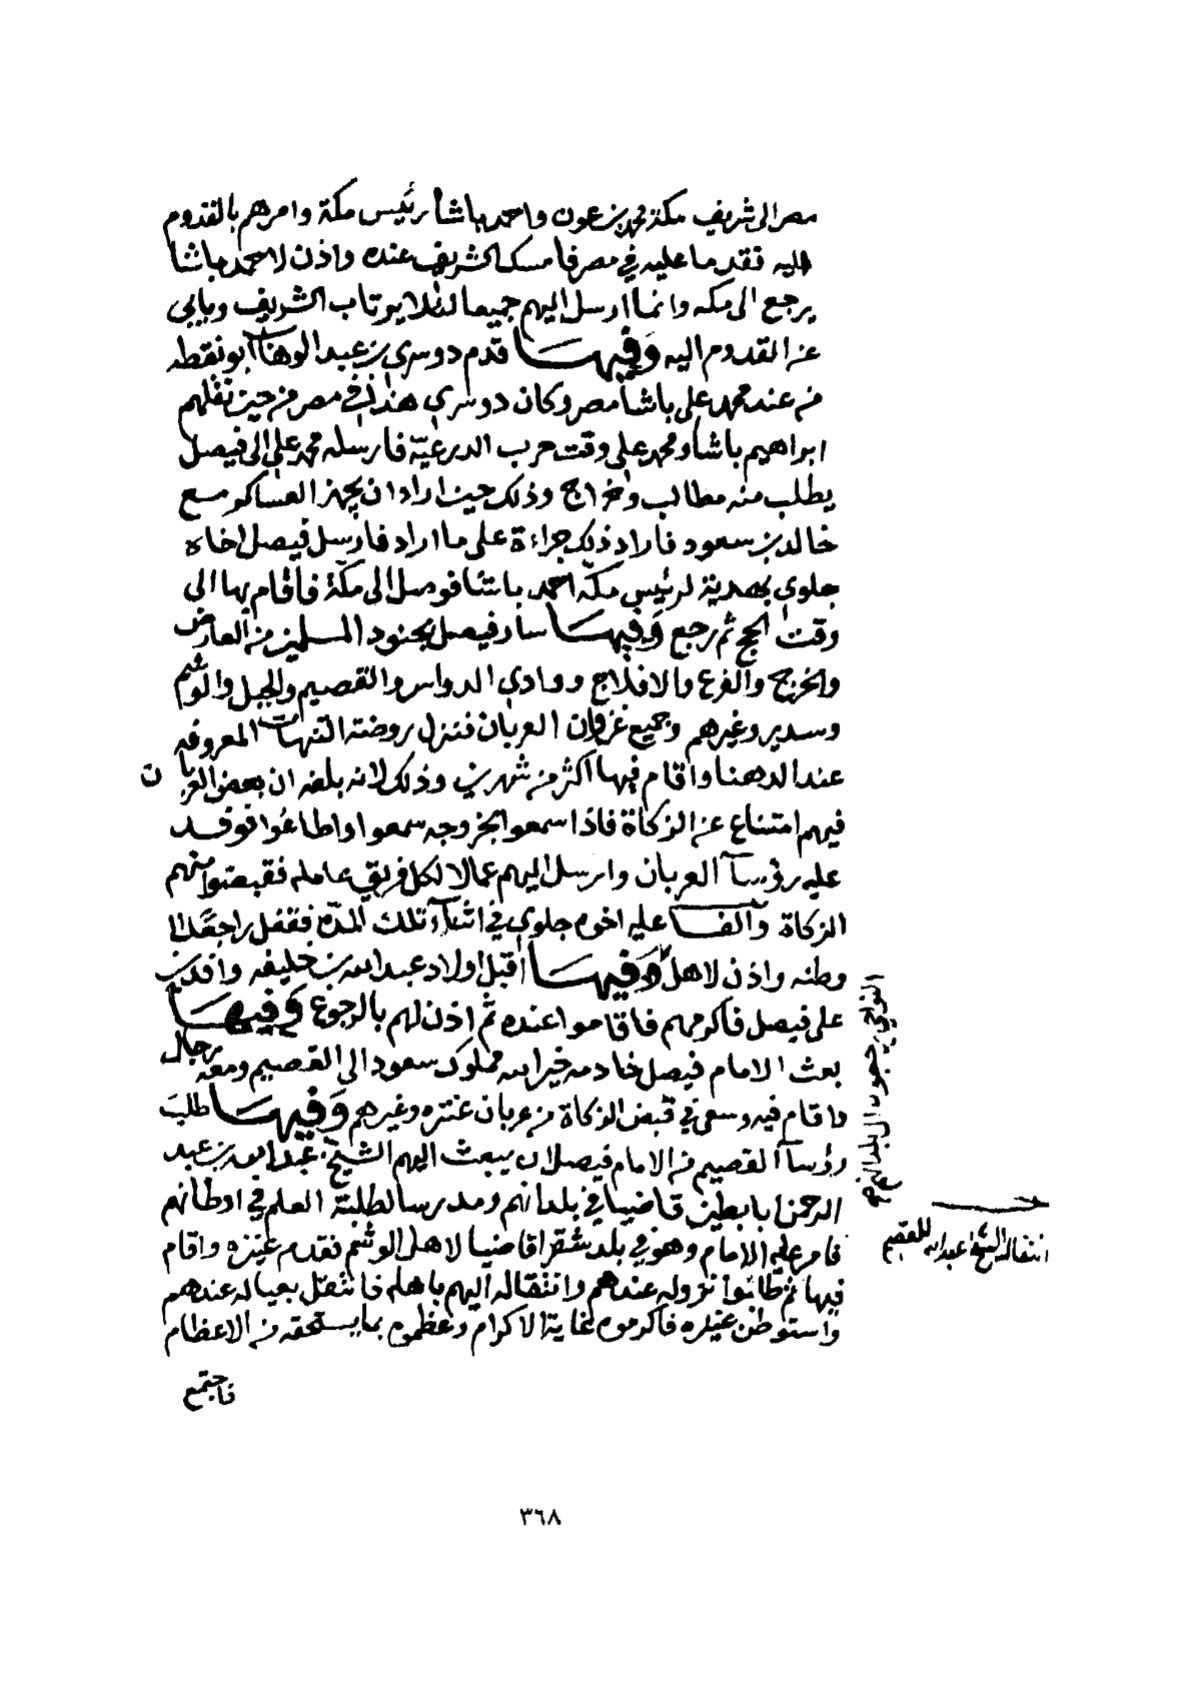 مصر الى شريف مكة محمد بن عون واحمد باشا رئيس مكة وامرهم بالقدوم
عليه فقدما عليه في مصر فامسك الشريف عنده واذن لاحمد باشا
يرجع الى مكه وانما ارسل اليهم جميعا لئلا يرتاب الشريف ويابى
عن القدوم اليه وَفيهَا قدم دوسري بن عبد الوهاب ابو نقطه
من عند محمد علي باشا مصر وكان دوسري هذا في مصر من حين نقلهم
ابراهيم باشا ومحمد علي وقت حرب الدرعيّة فارسله محمد علي الى فيصل
يطلب منه مطالب وخراج وذلك حين اراد ان يجهز العساكر مع
خالد بن سعود فاراد ذلك جراءة على ما اراد فارسل فيصل اخاه
جلوي بهدية لرئيس مكّة احمد باشا فوصل الى مكّة فاقام بها الى
وقت الحج ثم رجع وَفيهَا سار فيصل بجنود المسلمين من العارض
والخرج والفرع والافلاج ووادي الدواسر والقصيم والجبل والوشم
وسدير وغيرهم وجميع غزوان العربان فنزل روضة التنهات المعروفه
عند الدهنا واقام فيها اكثر من شهرين وذلك لانه بلغه ان بعض العربان
فيهم امتناع عن الزكاة فاذا سمعوا بخروجه سمعوا واطاعُوا فوفد
عليه رؤسآ العربان وارسل اليهم عمالا لكل فريق عامله فقبضوا منهم
الزكاة وآلفَا عليه اخوه جلوي في اثنآء تلك المدّه فقفل راجعًا الى
وطنه واذن لاهل وَفيهَا اقبل اولاد عبد الله بن خليفه وافدين
النواحي بالرجوع الى بلدانهم
على فيصل فاكرمهم فاقاموا عنده ثم اذن لهم بالرجوع وَفيهَا
بعث الامام فيصل خادمه خير الله مملوك سعود الى القصيم ومعه رجال
واقام فيه وسعى في قبض الزكاة من عربان عنزه وغيرهم وَفيهَا طلبَ
رؤسآ القصيم من الامام فيصل ان يبعث اليهم الشيخ عبد الله بن عبد
الرحمن ابا بطين قاضيا في بلدانهم ومدرسا لطلبة العلم في اوطانهم
انتقال الشيخ عبد الله للقصيم
فامر عليه الامام وهو في بلد شقرا قاضيا لاهل الوشم فقدم عنيزه واقام
فيها ثم طلبوا نزوله عندهم وانتقاله اليهم باهله فانتقل بعياله عندهم
واستوطن عنيزه فاكرموه لغاية الاكرام وعظموه بما يستحقه من الاعظام
فاجتمع
٣٦٨